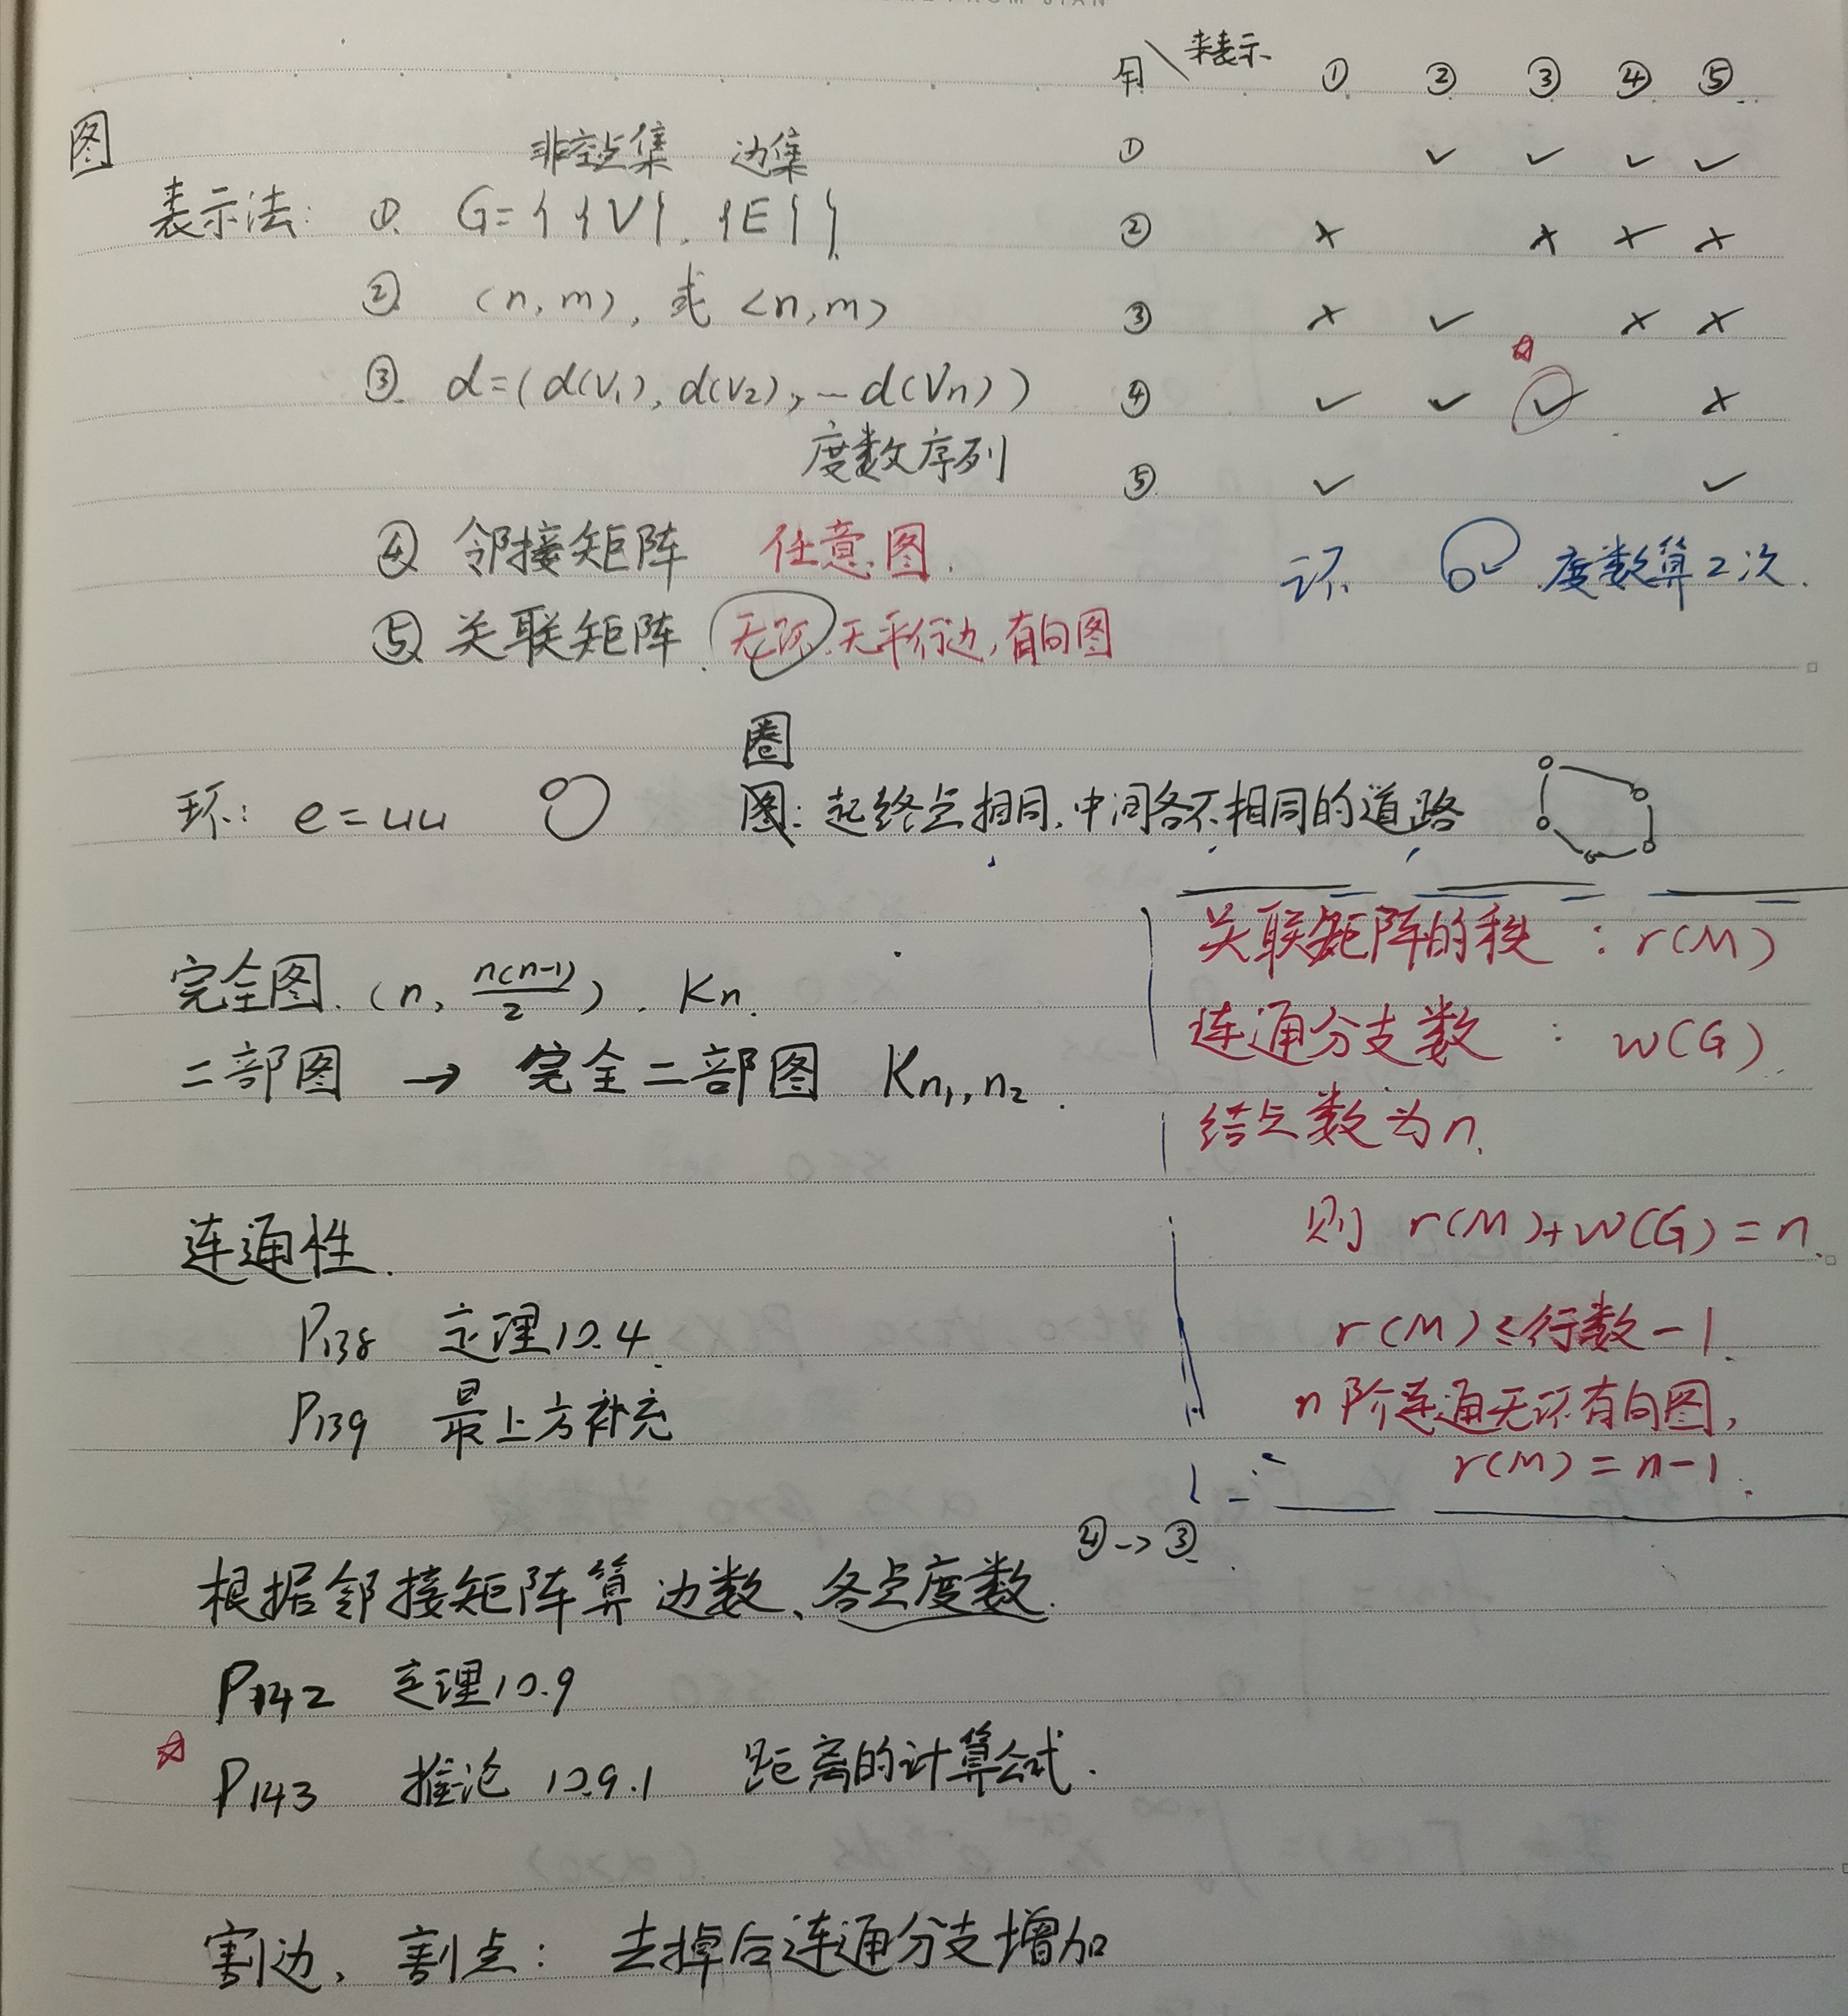 用\来表示 ① ② ③ ④ ⑤
① ✓ ✓ ✓ ✓
② × × × ×
③ × ✓ × ×
④ ✓ ✓ ✓ ×
⑤ ✓ ✓
环 度数算2次.
图
非空点集 边集
表示法: ① G={{V}, {E}}
② (n,m), 或 <n,m>
③ d=(d(V₁), d(V₂), … d(Vn))
度数序列
④ 邻接矩阵 任意图.
⑤ 关联矩阵. 无环,无平行边,有向图
圈
环: e=uu 图: 起终点相同,中间各不相同的道路
完全图. (n, n(n-1)/2). Kn.
二部图 → 完全二部图 Kn₁,n₂.
关联矩阵的秩 : r(M)
连通分支数 : w(G)
结点数为n.
则 r(M)+w(G)=n.
r(M)≤行数-1.
n阶连通无环有向图,
r(M)=n-1.
连通性.
P138 定理10.4.
P139 最上方补充
④→③
根据邻接矩阵算边数、各点度数.
P142 定理10.9
☆ P143 推论 10.9.1 距离的计算公式.
割边、割点: 去掉后连通分支增加